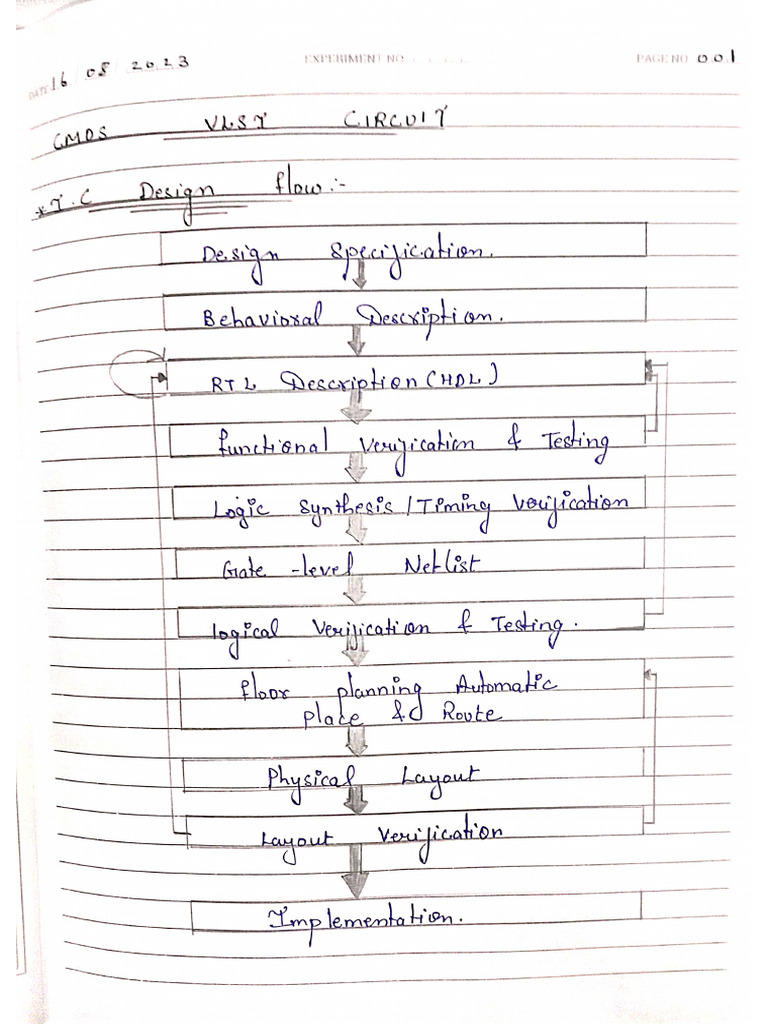 DATE 16 08 2023
EXPERIMENT NO.
PAGE NO 001
CMOS VLSI CIRCUIT
* I.C Design flow:-
Design Specification.
Behavioral Description.
RTL Description (HDL)
Functional Verification & Testing
Logic Synthesis / Timing Verification
Gate-level Netlist
Logical Verification & Testing.
Floor planning Automatic
place & Route
Physical Layout
Layout Verification
Implementation.